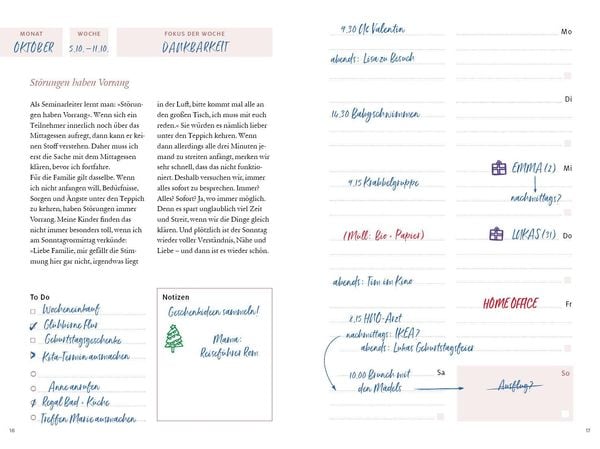 MONAT
OKTOBER
WOCHE
5.10. – 11.10.
FOKUS DER WOCHE
DANKBARKEIT
Störungen haben Vorrang
Als Seminarleiter lernt man: »Störun-
gen haben Vorrang«. Wenn sich ein
Teilnehmer innerlich noch über das
Mittagessen aufregt, dann kann er kei-
nen Stoff verstehen. Daher muss ich
erst die Sache mit dem Mittagessen
klären, bevor ich fortfahre.
Für die Familie gilt dasselbe. Wenn
ich nicht anfangen will, Bedürfnisse,
Sorgen und Ängste unter den Teppich
zu kehren, haben Störungen immer
Vorrang. Meine Kinder finden das
nicht immer besonders toll, wenn ich
am Sonntagvormittag verkünde:
»Liebe Familie, mir gefällt die Stim-
mung hier gar nicht, irgendwas liegt
in der Luft, bitte kommt mal alle an
den großen Tisch, ich muss mit euch
reden.« Sie würden es nämlich lieber
unter den Teppich kehren. Wenn
dann allerdings alle drei Minuten je-
mand zu streiten anfängt, merken wir
sehr schnell, dass das nicht funktio-
niert. Deshalb versuchen wir, immer
alles sofort zu besprechen. Immer?
Alles? Sofort? Ja, wo immer möglich.
Denn es spart unglaublich viel Zeit
und Streit, wenn wir die Dinge gleich
klären. Und plötzlich ist der Sonntag
wieder voller Verständnis, Nähe und
Liebe – und dann ist es wieder schön.
To Do
Wocheneinkauf
Glühbirne Flur
Geburtstagsgeschenke
Kita-Termin ausmachen
Anne anrufen
Regal Bad + Küche
Treffen Marie ausmachen
Notizen
Geschenkideen sammeln!
Mama:
Reiseführer Rom
16
9.30 Valentin
Mo
abends: Lisa zu Besuch
Di
16.30 Babyschwimmen
Mi
EMMA (2)
nachmittags?
9.15 Krabbelgruppe
Do
LUKAS (31)
(Müll: Bio + Papier)
abends: Tim im Kino
Fr
HOME OFFICE
8.15 HNO-Arzt
nachmittags: IKEA?
abends: Lukas Geburtstagsfeier
Sa
10.00 Brunch mit
den Mädels
So
Ausflug?
17